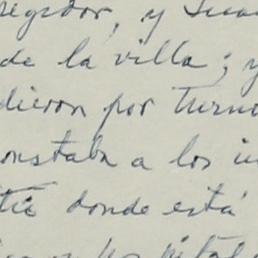 regidor, y Juan
de la villa; y
dieron por turno
onstaba a los in
tie donde está